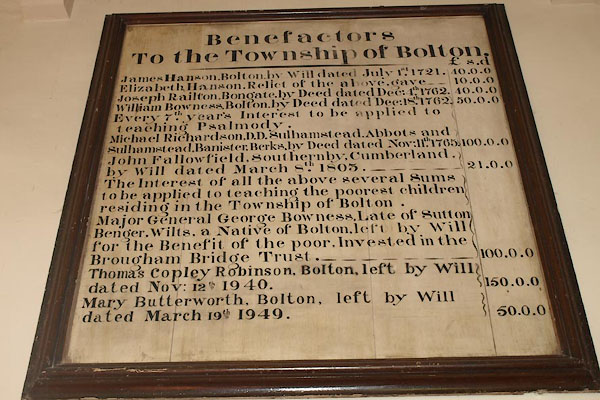 Benefactors
To the Township of Bolton.
£ s.d
James Hanson, Bolton, by Will dated July 1st, 1721. 40.0.0
Elizabeth Hanson, Relict of the above, gave 10.0.0
Joseph Railton, Bongate, by Deed dated Dec: 4th, 1762. 40.0.0
William Bowness, Bolton, by Deed dated Dec: 18th, 1762. 50.0.0
Every 7th, years Interest to be applied to
teaching Psalmody.
Michael Richardson, D.D. Sulhamstead, Abbots and
Sulhamstead, Banister, Berks, by Deed dated Nov: 11th, 1765. 100.0.0
John Fallowfield, Southernby, Cumberland,
by Will dated March 8th, 1803. 21.0.0
The Interest of all the above several Sums
to be applied to teaching the poorest children
residing in the Township of Bolton.
Major General George Bowness, Late of Sutton
Benger, Wilts, a Native of Bolton, left by Will
for the Benefit of the poor, Invested in the
Brougham Bridge Trust 100.0.0
Thomas Copley Robinson, Bolton, left by Will
dated Nov: 12th 1940. 150.0.0
Mary Butterworth, Bolton, left by Will
dated March 19th 1949. 50.0.0